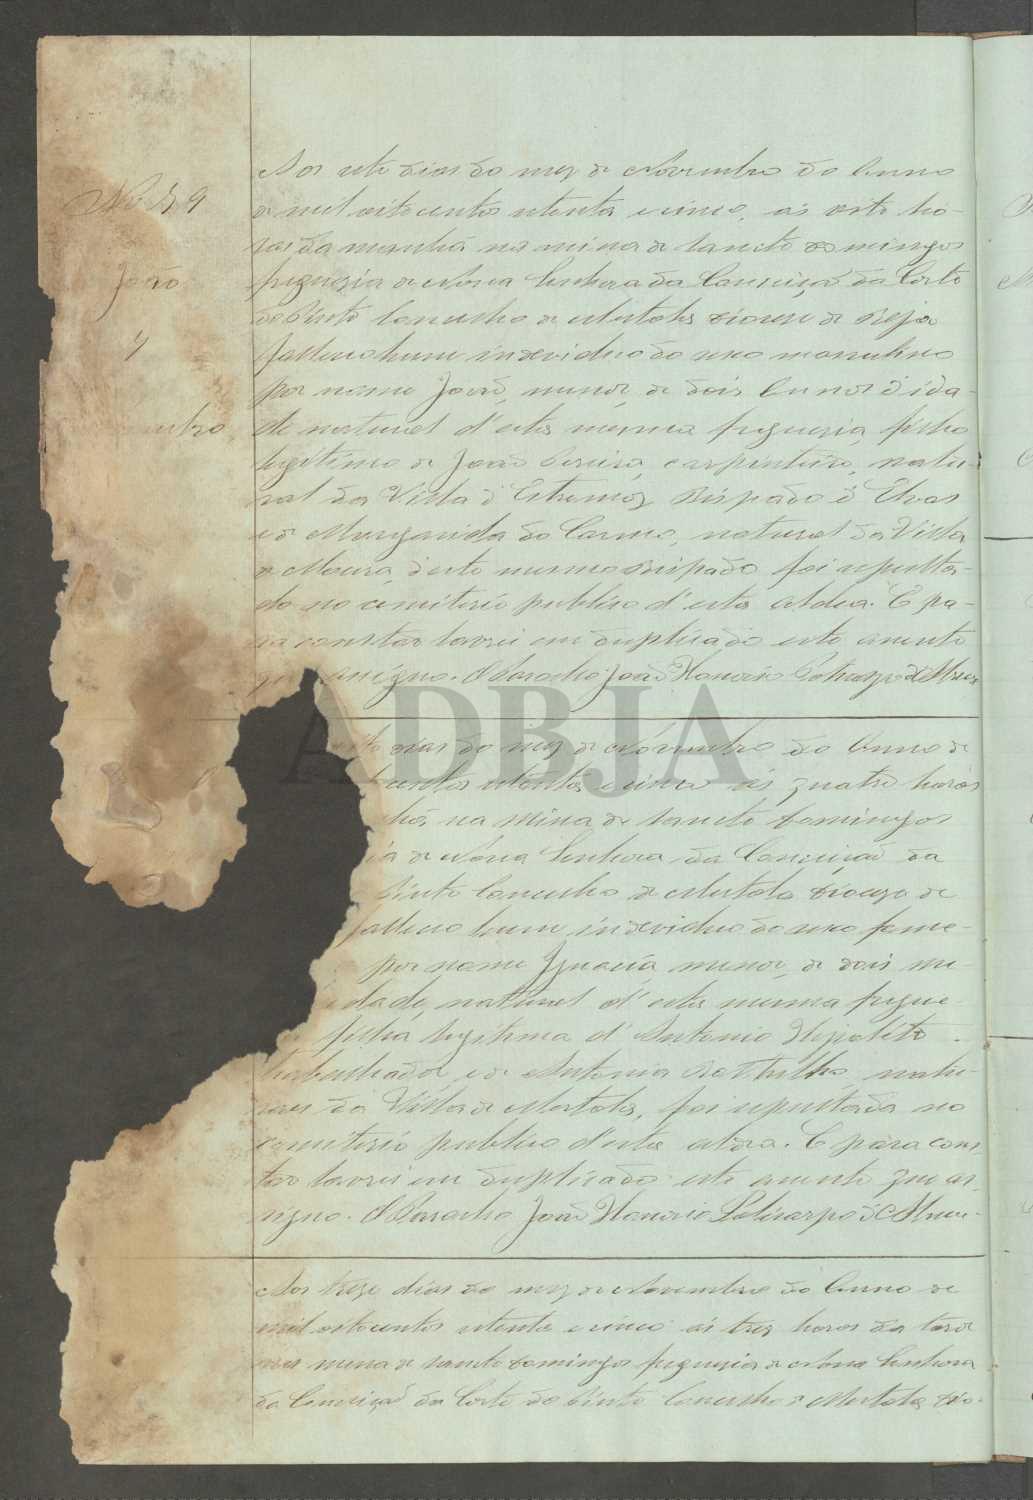 Nº 59
João
7
embro
Aos sete dias do mez de Novembro do Anno
de mil oitocentos setenta e cinco, ás oito ho-
ras da manhã na mina de Sancto Domingos
freguezia de Nossa Senhora da Conceição da Corte
do Pinto Concelho de Mertola diocese de Beja
falleceo hum individuo do sexo masculino
por nome João, menor, de dois Annos d'ida-
de natural d'esta mesma freguezia, filho
legitimo de João Pereira, carpinteiro, natu-
ral da Villa d'Estremoz Bispado d'Elvas
e de Margarida do Carmo, natural da Villa
de Moura, deste mesmo Bispado foi sepulta-
do no cemiterio publico d'esta Aldea. E pa-
ra constar lavrei em duplicado este assento
que assigno. O Parocho João Honorio Policarpo d'Abreu
oito dias do mez de Novembro do Anno de
centos setenta e cinco ás quatro horas
hã, na Mina de Sancto Domingos
ia de Nossa Senhora da Conceição da
Pinto Concelho de Mertola diocese de
falleceo hum individuo do sexo feme-
por nome Ignacia, menor, de dois me-
idade, natural d'esta mesma fregue-
filha legitima d'Antonio Hypolito
trabalhador e de Antonia natu-
raes da Villa de Mertola, foi sepultada no
cemiterio publico d'esta aldea. E para cons-
tar lavrei em duplicado este assento que as-
signo. O Parocho João Honorio Policarpo d'Abreu-
Aos treze dias do mez de Novembro do Anno de
mil oitocentos setenta e cinco ás tres horas da tarde
na mina de Sancto Domingos freguezia de Nossa Senhora
da Conceição da Corte do Pinto Concelho d Mertola, dio-
ADBJA